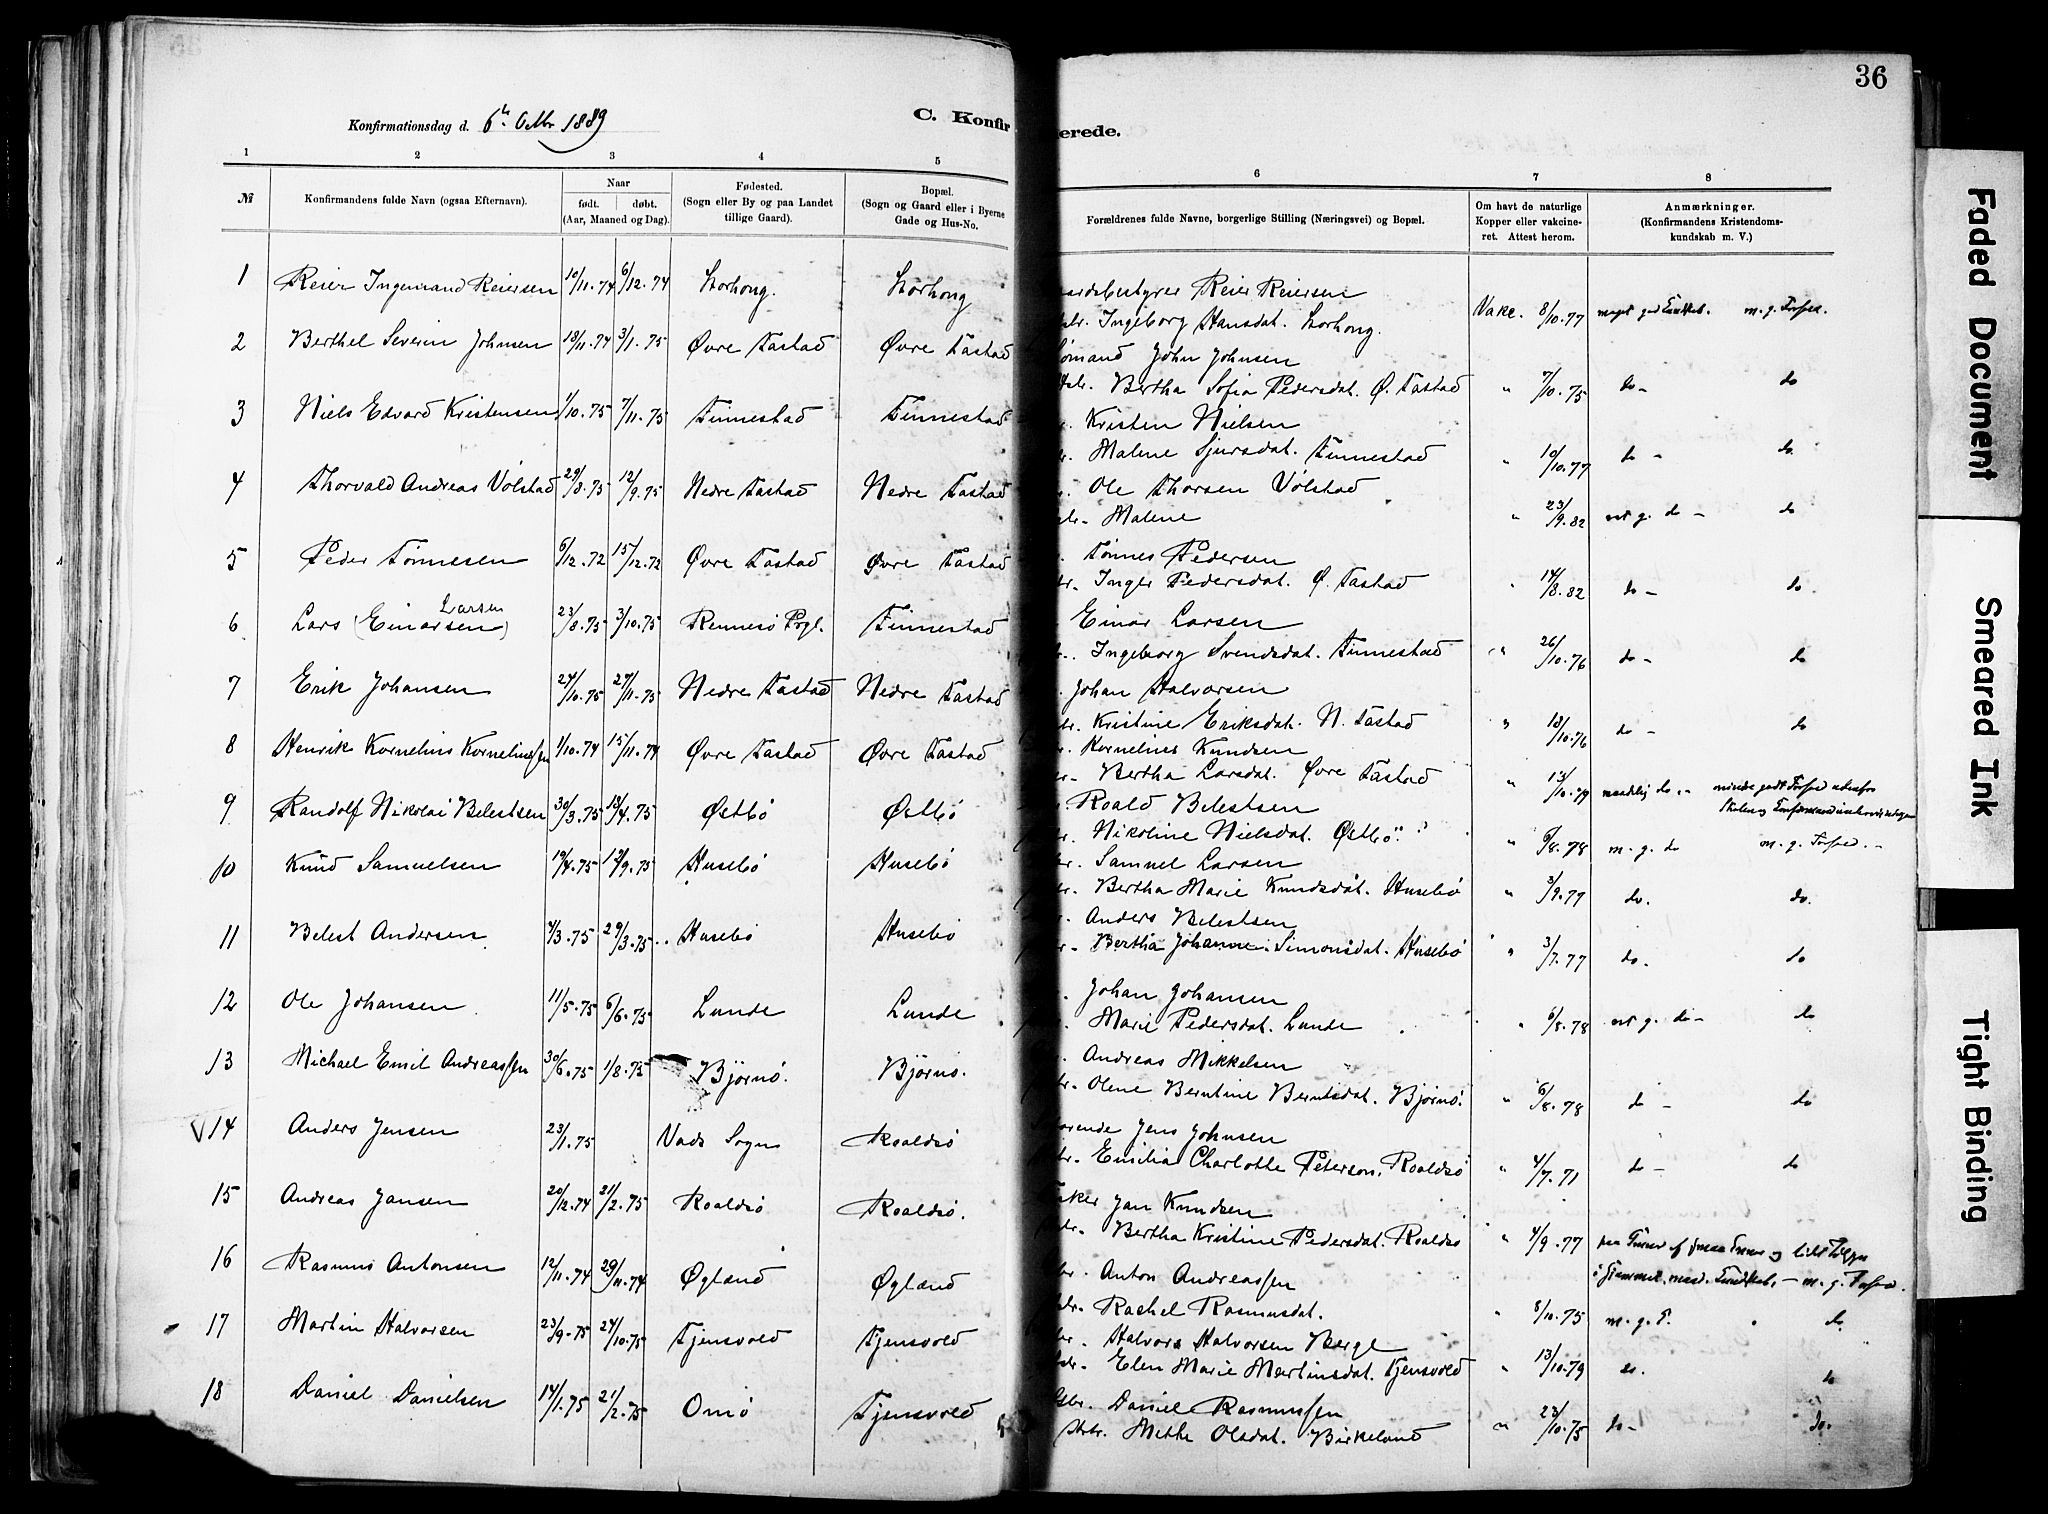 36
Konfirmationsdag d. 6te Oktbr 1889
C. Konfir
erede.
1 2 3 4 5 6 7 8
№
Konfirmandens fulde Navn (ogsaa Efternavn).
Naar
født. døbt.
(Aar, Maaned og Dag).
Fødested.
(Sogn eller By og paa Landet
tillige Gaard).
Bopæl.
(Sogn og Gaard eller i Byerne
Gade og Hus-No.
Forældrenes fulde Navne, borgerlige Stilling (Næringsvei) og Bopæl.
Om havt de naturlige
Kopper eller vakcine-
ret. Attest herom.
Anmærkninger.
(Konfirmandens Kristendoms-
kundskab m. V.)
1 Reier Ingemand Reiersen 10/11.74 6/12.74 Storhong. Storhong
aardsbestyrer Reier Reiersen
Ingeborg Hansdat. Storhong. Vakc. 8/10.77
2 Berthel Severin Johnsen 18/11.74 3/1.75 Øvre Tastad Øvre Tastad
ømand John Johnsen
Bertha Sofia Pedersdat. Ø. Tastad " 7/10.75 do- do
3 Niels Edvard Kristensen 1/10.75 7/11.75 Finnestad Finnestad
Kristen Nielsen
Malene Sjursdat. Finnestad " 10/10.77 do - do.
4 Thorvald Andreas Vølstad 29/8.75 12/9.75 Nedre Tastad Nedre Tastad
Ole Thorsen Vølstad
Malene " 23/9.82 do - do
5 Peder Tønnesen 6/12.72 15/12.72 Øvre Tastad Øvre Tastad
Tønnes Pedersen
Inger Pedersdat. Ø. Tastad " 14/8.82 do - do.
6 Lars (Einarsen) Larsen 23/8.75 3/10.75 Rennesø Prgl. Finnestad
Einar Larsen
Ingeborg Svendsdat. Finnestad " 26/10.76 do - do
7 Erik Johansen 24/10.75 27/11.75 Nedre Tastad Nedre Tastad
Johan Halvorsen
Kristine Eriksdat. N. Tastad " 18/10.76 do - do
8 Henrik Kornelius Korneliussen 1/10.74 15/11.74 Øvre Tastad Øvre Tastad
Kornelius Knudsen
Bertha Larsdat. Øvre Tastad " 13/10.79
9 Randolf Nikolai Belestsen 30/3.75 18/4.75 Østbø Østbø
Roald Belestsen
Nikoline Nielsdat. Østbø " 6/8.78 m. g. do m. g. Forhd. -
10 Knud Samuelsen 19/4.75 12/9.75 Husebø Husebø
Samuel Larsen
Bertha Marie Knudsdat. Husebø " 3/9.77 do. do.
11 Belest Andersen 4/3.75 29/3.75 Husebø Husebø
Anders Belestsen
Bertha Johanne Simonsdat. Husebø " 3/7.77 do. do
12 Ole Johansen 11/5.75 6/6.75 Lunde Lunde
Johan Johansen
Marie Pedersdat. Lunde " 6/8.78 do - do
13 Michael Emil Andreassen 30/6.75 1/8.75 Bjørnø. Bjørnø.
Andreas Mikkelsen
Olene Berntine Berntsdat. Bjørnø. " 6/8.78 do - do
V 14 Anders Jensen 23/1.75 Vads Sogn Roaldsø
Jens Johnsen
Emilia Charlotte Peterson, Roaldsø " 4/7.71 do - do
15 Andreas Jansen 20/12.74 21/2.75 Roaldsø Roaldsø.
Jan Knudsen
Bertha Kristine Pedersdat. Roaldsø " 4/9.77
16 Rasmus Antonsen 12/11.74 29/11.74 Øgland Øgland
Anton Andreassen
Rachel Rasmusdat. " 8/10.75 m. g. do.
17 Martin Halvorsen 23/9.75 24/10.75 Tjensvold Tjensvold
Halvors Halvorsen Berge
Elen Marie Martinsdat. Tjensvold " 13/10.79 do. do
18 Daniel Danielsen 14/1.75 21/2.75 Omø Tjensvold
Daniel Rasmussen
Mette Olsdat. Birkeland " 23/10.75 do - do.
Faded Document
Smeared Ink
Tight Binding